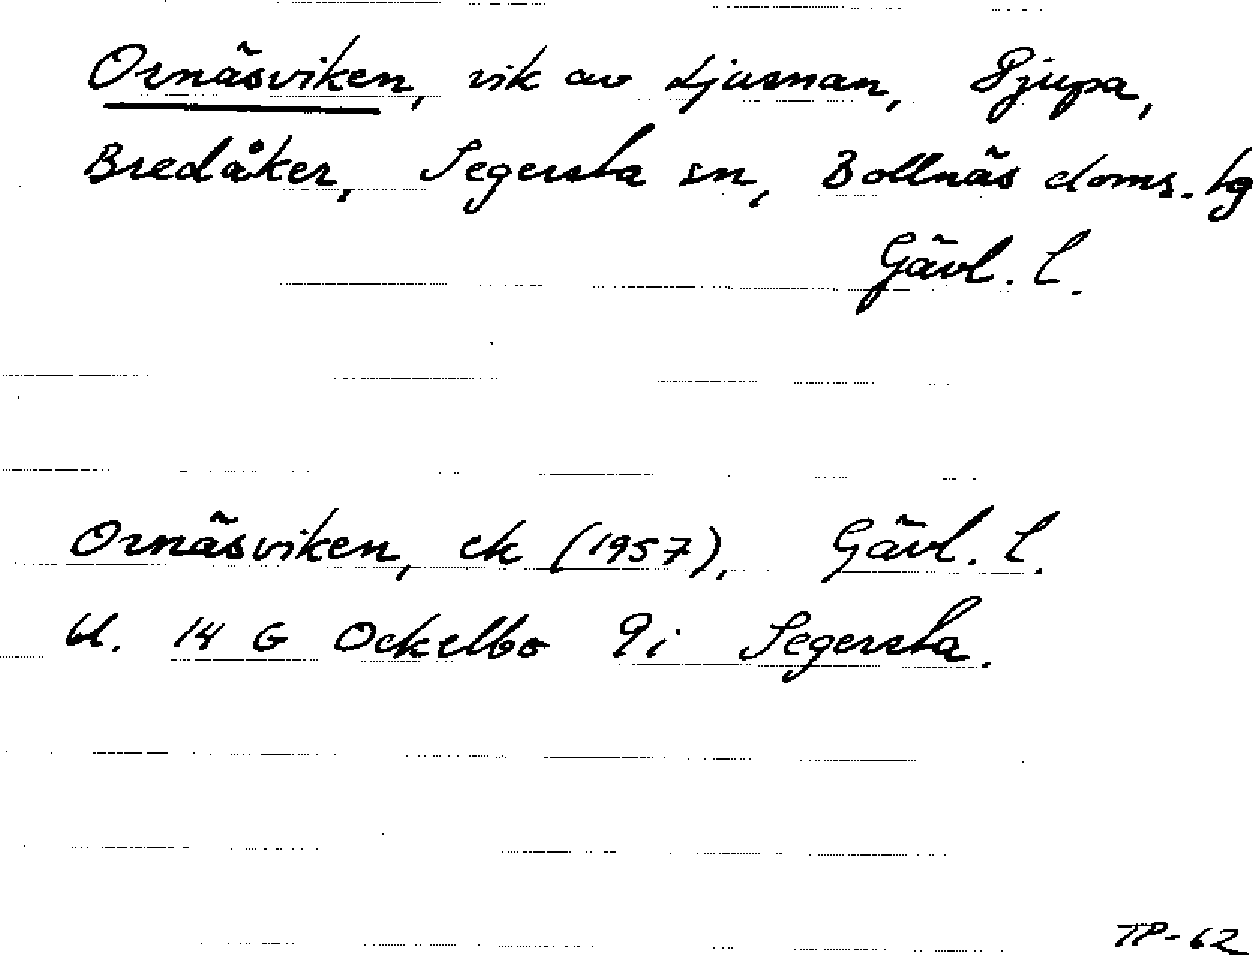 Ornäsviken, vik av Ljusnan, Djupa,
Bredåker, Segersta sn, Bollnäs doms. tg
Gävl. l.
Ornäsviken, ek (1957), Gävl. l.
bl. 14 G Ockelbo 9i Segersta.
TP-62